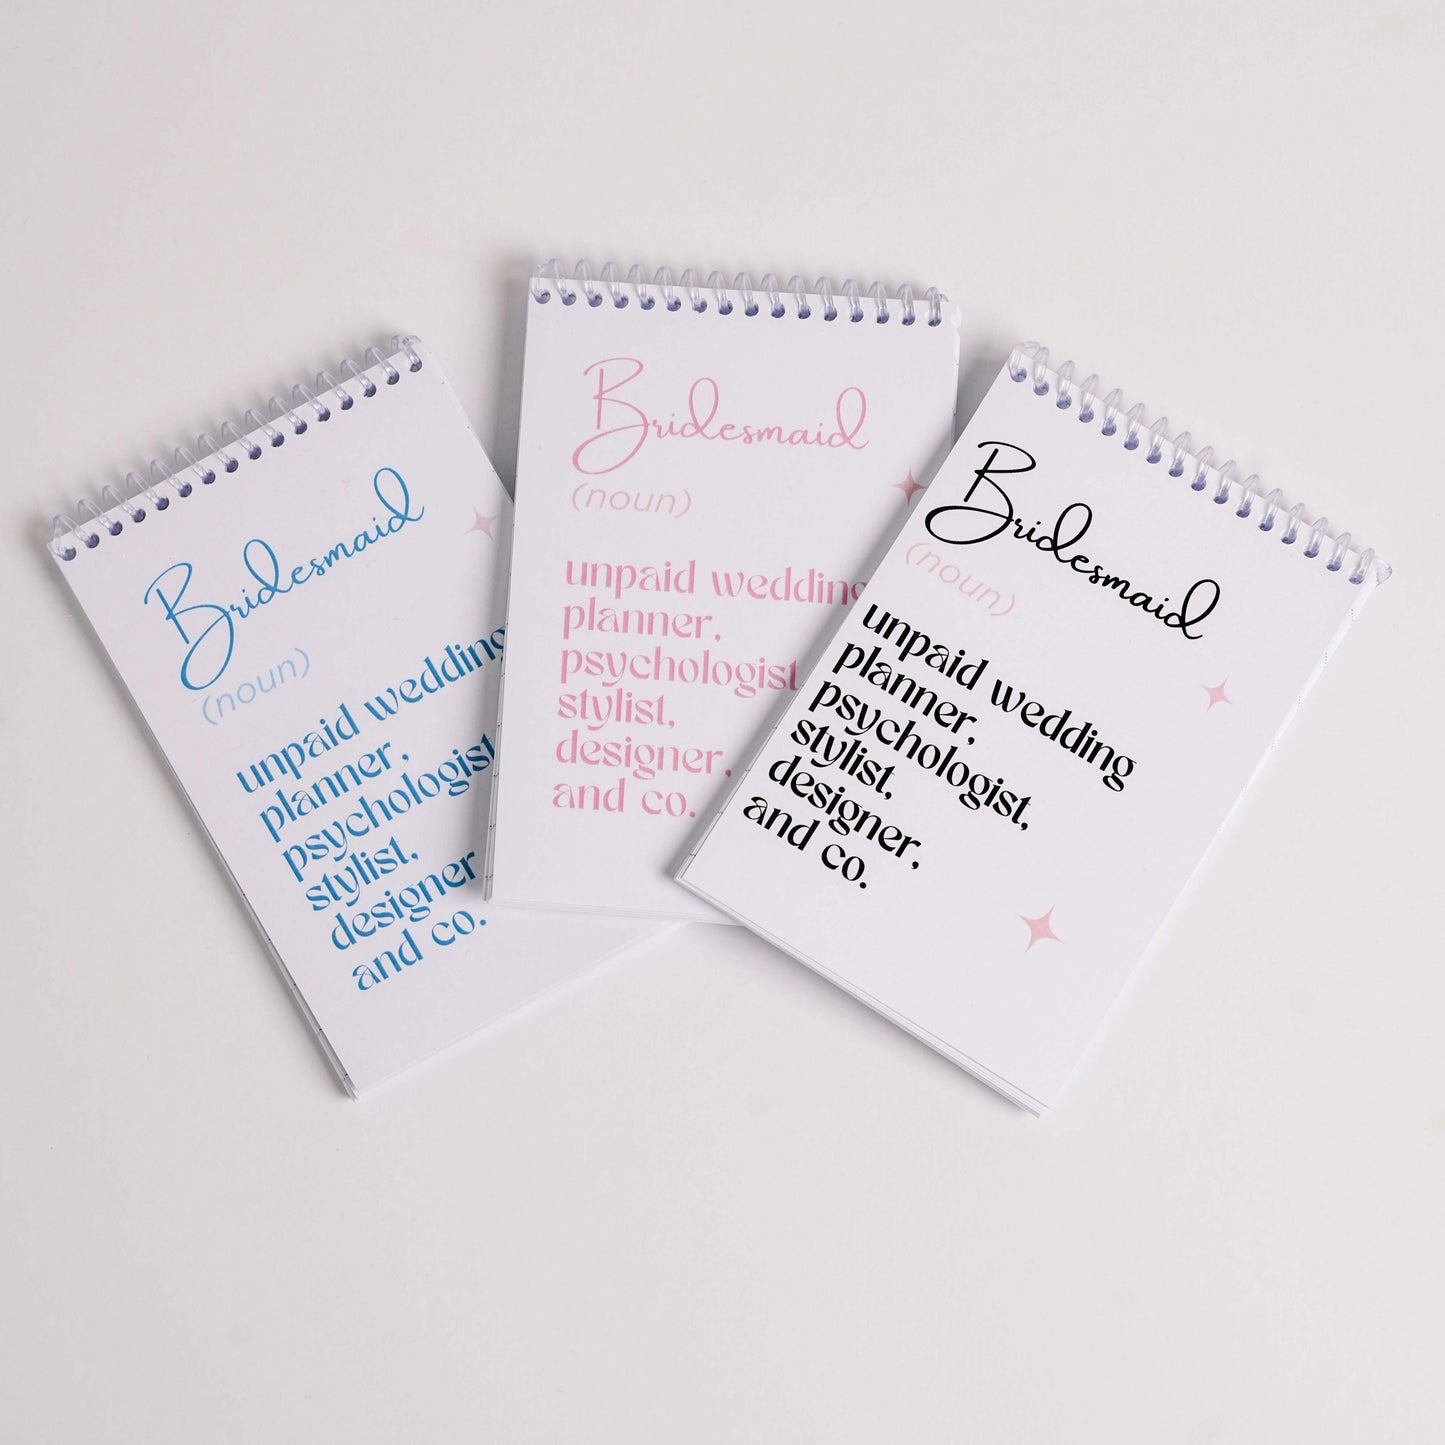 Bridesmaid
(noun)
unpaid wedding
planner,
psychologist
stylist,
designer
and co.
Bridesmaid
(noun)
unpaid wedding
planner,
psychologist
stylist,
designer,
and co.
Bridesmaid
(noun)
unpaid wedding
planner,
psychologist,
stylist,
designer,
and co.